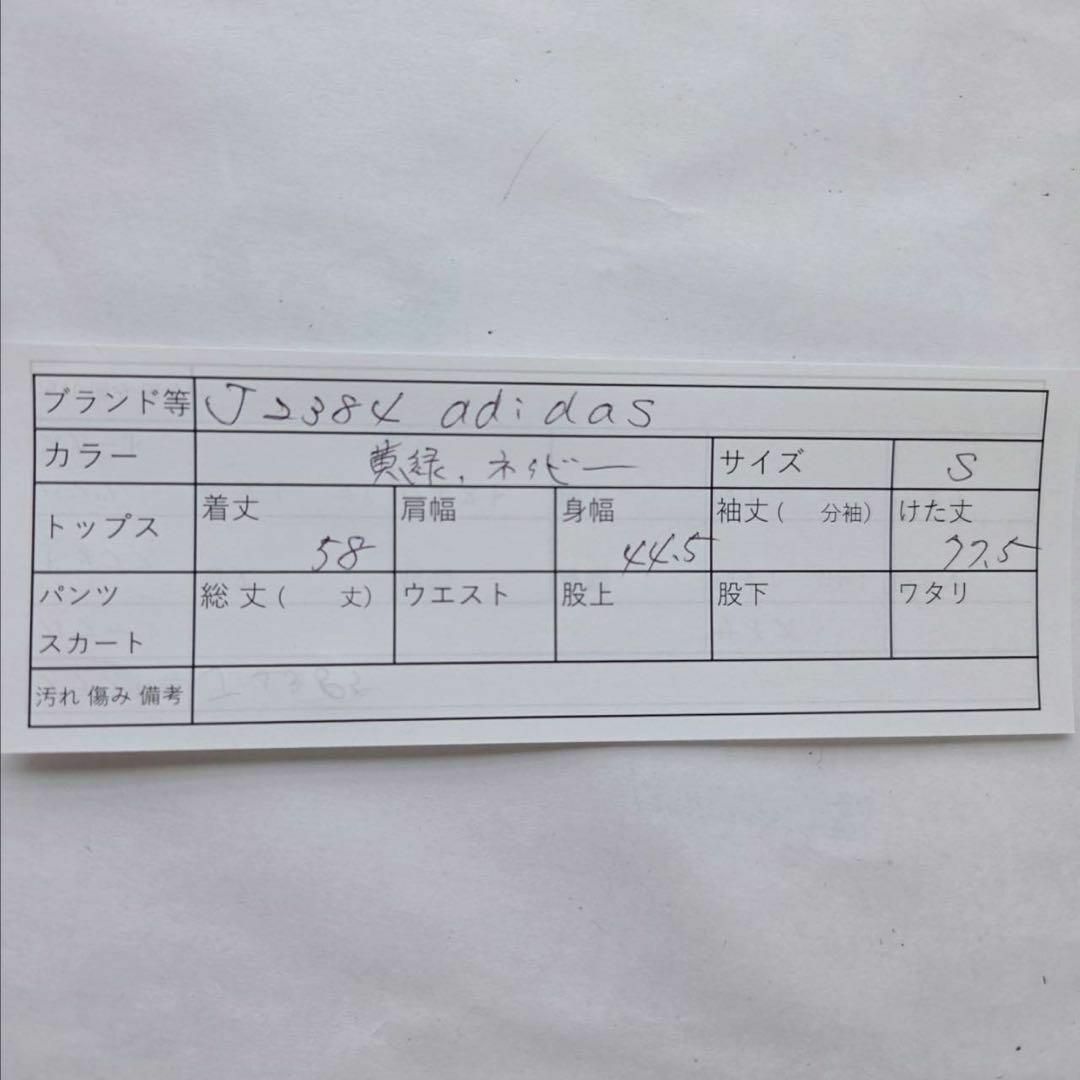 ブランド等 J2384 adidas
カラー 黄緑、ネイビー サイズ S
トップス 着丈 58 肩幅 身幅 44.5 袖丈( 分袖) けた丈 77.5
パンツ スカート 総丈( 丈) ウエスト 股上 股下 ワタリ
汚れ 傷み 備考